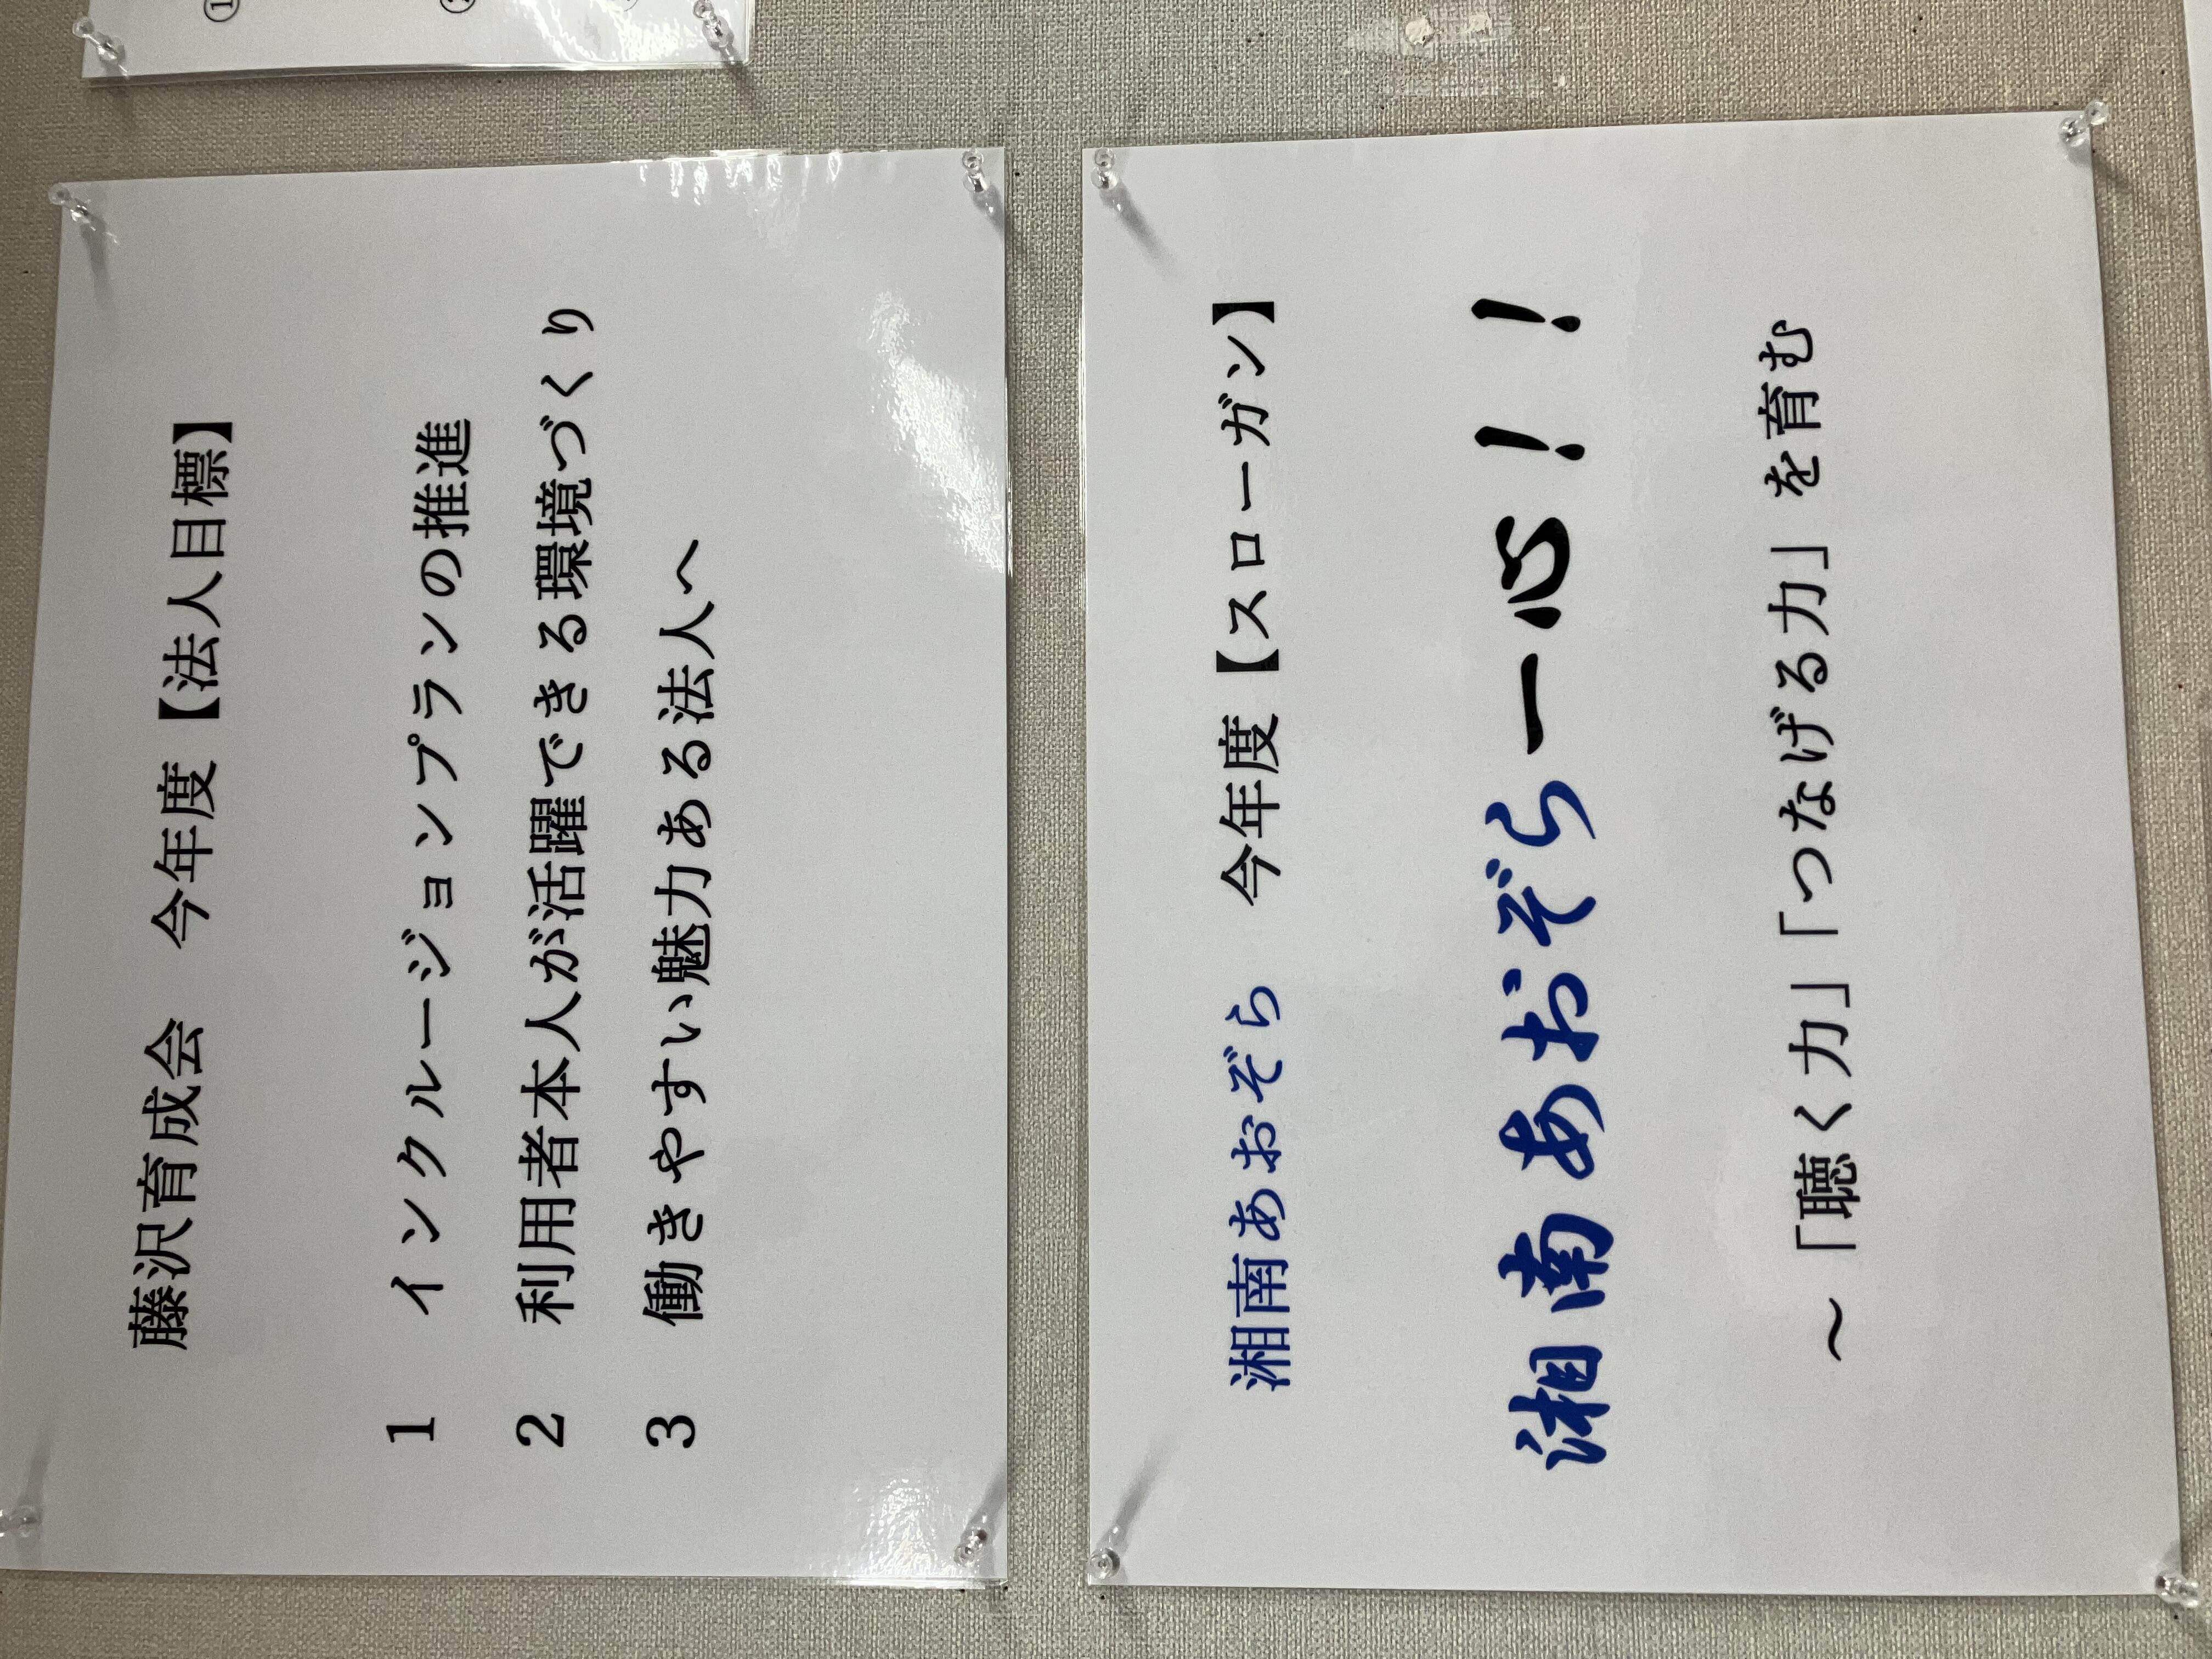 ①
藤沢育成会　今年度【法人目標】
1　インクルージョンプランの推進
2　利用者本人が活躍できる環境づくり
3　働きやすい魅力ある法人へ
湘南あおぞら　今年度【スローガン】
湘南あおぞら一心！！
～「聴く力」「つなげる力」を育む